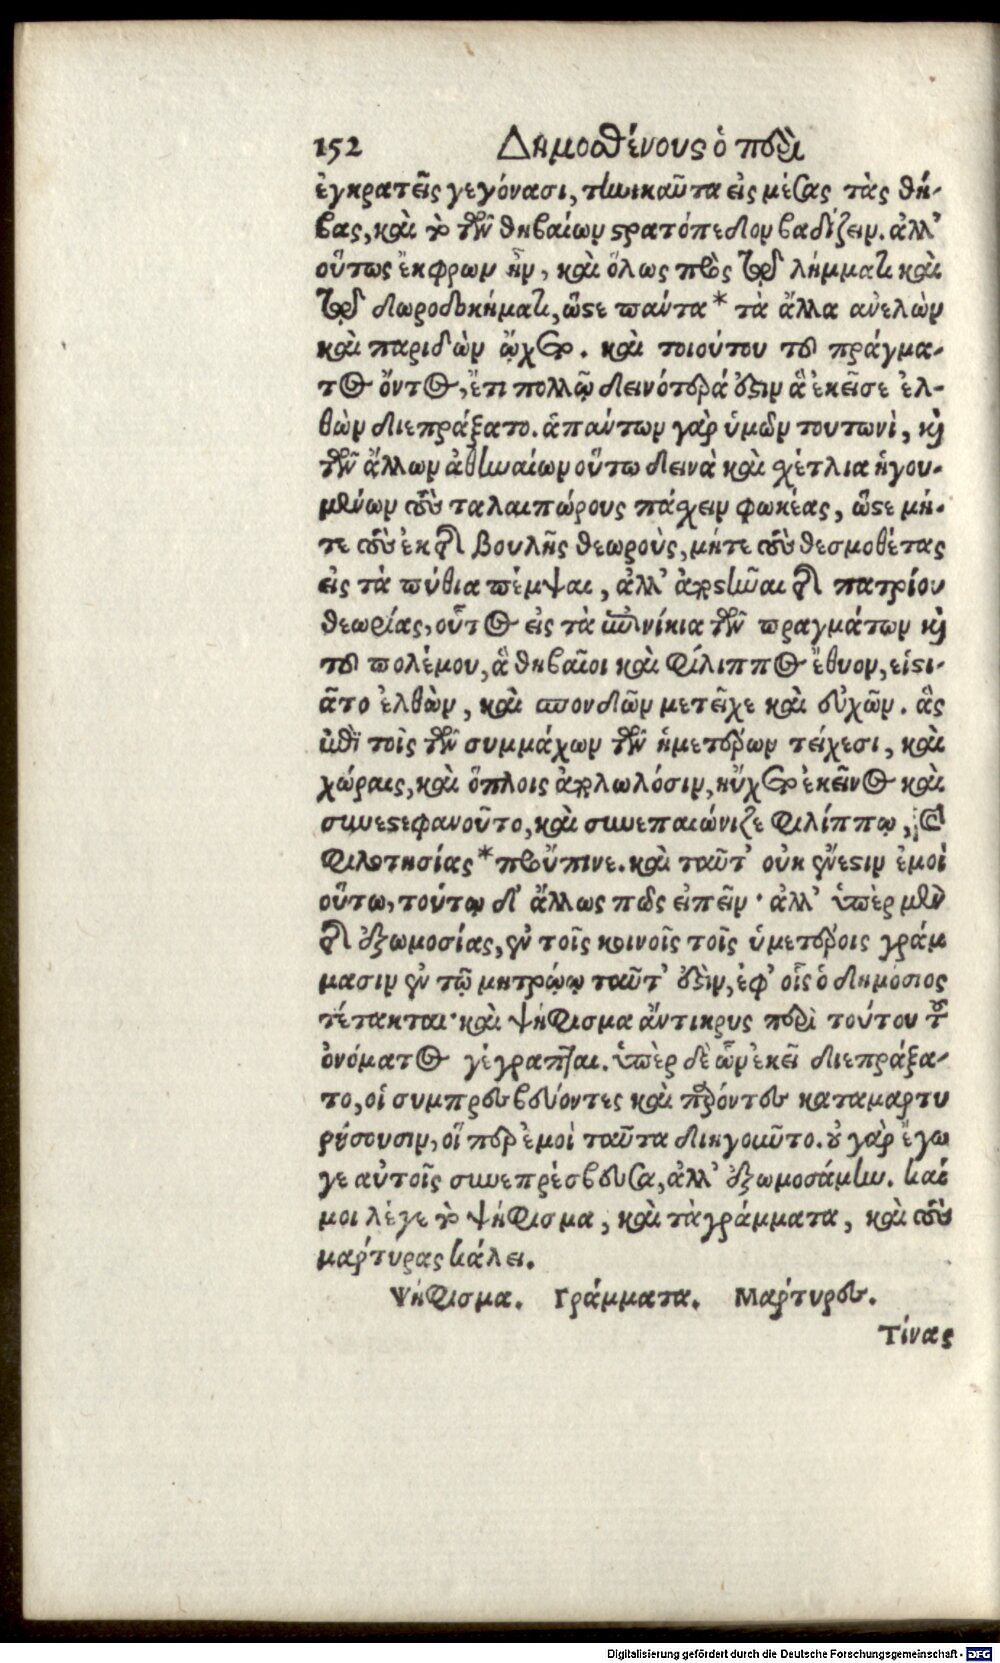 152 Δημοσθένους ὁ περὶ
ἐγκρατεῖς γεγόνασι, τηνικαῦτα εἰς μέσας τὰς θή-
βας, καὶ τὸ τῶν θηβαίων στρατόπεδον βαδίζειν. ἀλλ'
οὕτως ἔκφρων ἦν, καὶ ὅλως πρὸς τῷ λήμματι καὶ
τῷ δωροδοκήματι, ὥστε πάντα* τὰ ἄλλα ἀνελὼν
καὶ παριδὼν ᾤχετο. καὶ τοιούτου τοῦ πράγμα-
τος ὄντος, ἔτι πολλῷ δεινότερά ἐστιν ἃ ἐκεῖσε ἐλ-
θὼν διεπράξατο. ἁπάντων γὰρ ὑμῶν τουτωνὶ, καὶ
τῶν ἄλλων ἀθηναίων οὕτω δεινὰ καὶ σχέτλια ἡγου-
μένων τοὺς ταλαιπώρους πάσχειν φωκέας, ὥστε μή-
τε τοὺς ἐκ τῆς βουλῆς θεωροὺς, μήτε τοὺς θεσμοθέτας
εἰς τὰ πύθια πέμψαι, ἀλλ' ἀποστῆναι τῆς πατρίου
θεωρίας, οὗτος εἰς τὰ ἐπινίκια τῶν πραγμάτων καὶ
τοῦ πολέμου, ἃ θηβαῖοι καὶ φίλιππος ἔθυον, εἱστι-
ᾶτο ἐλθὼν, καὶ σπονδῶν μετεῖχε καὶ εὐχῶν. ἃς
ἐπὶ τοῖς τῶν συμμάχων τῶν ἡμετέρων τείχεσι, καὶ
χώραις, καὶ ὅπλοις ἀπολωλόσιν, ηὔχετο ἐκεῖνος καὶ
συνεστεφανοῦτο, καὶ συνεπαιώνιζε φιλίππῳ, καὶ
φιλοτησίας* προὔπινε. καὶ ταῦτ' οὐκ ἔνεστιν ἐμοὶ
οὕτω, τούτῳ δ' ἄλλως πως εἰπεῖν· ἀλλ' ὑπὲρ μὲν
τῆς ἐξωμοσίας, ἐν τοῖς κοινοῖς τοῖς ὑμετέροις γράμ
μασιν ἐν τῷ μητρῴῳ ταῦτ' ἐστὶν, ἐφ' οἷς ὁ δημόσιος
τέτακται· καὶ ψήφισμα ἄντικρυς περὶ τούτου τοῦ
ὀνόματος γέγραπται. ὑπὲρ δὲ ὧν ἐκεῖ διεπράξα-
το, οἱ συμπρεσβεύοντες καὶ παρόντες καταμαρτυ
ρήσουσιν, οἵ περ ἐμοὶ ταῦτα διηγοῦντο. οὐ γὰρ ἔγω
γε αὐτοῖς συνεπρέσβευσα, ἀλλ' ἐξωμοσάμην. καί
μοι λέγε τὸ ψήφισμα, καὶ τὰ γράμματα, καὶ τοὺς
μάρτυρας κάλει.
Ψήφισμα. Γράμματα. Μάρτυρες.
Τίνας
Digitalisierung gefördert durch die Deutsche Forschungsgemeinschaft - DFG